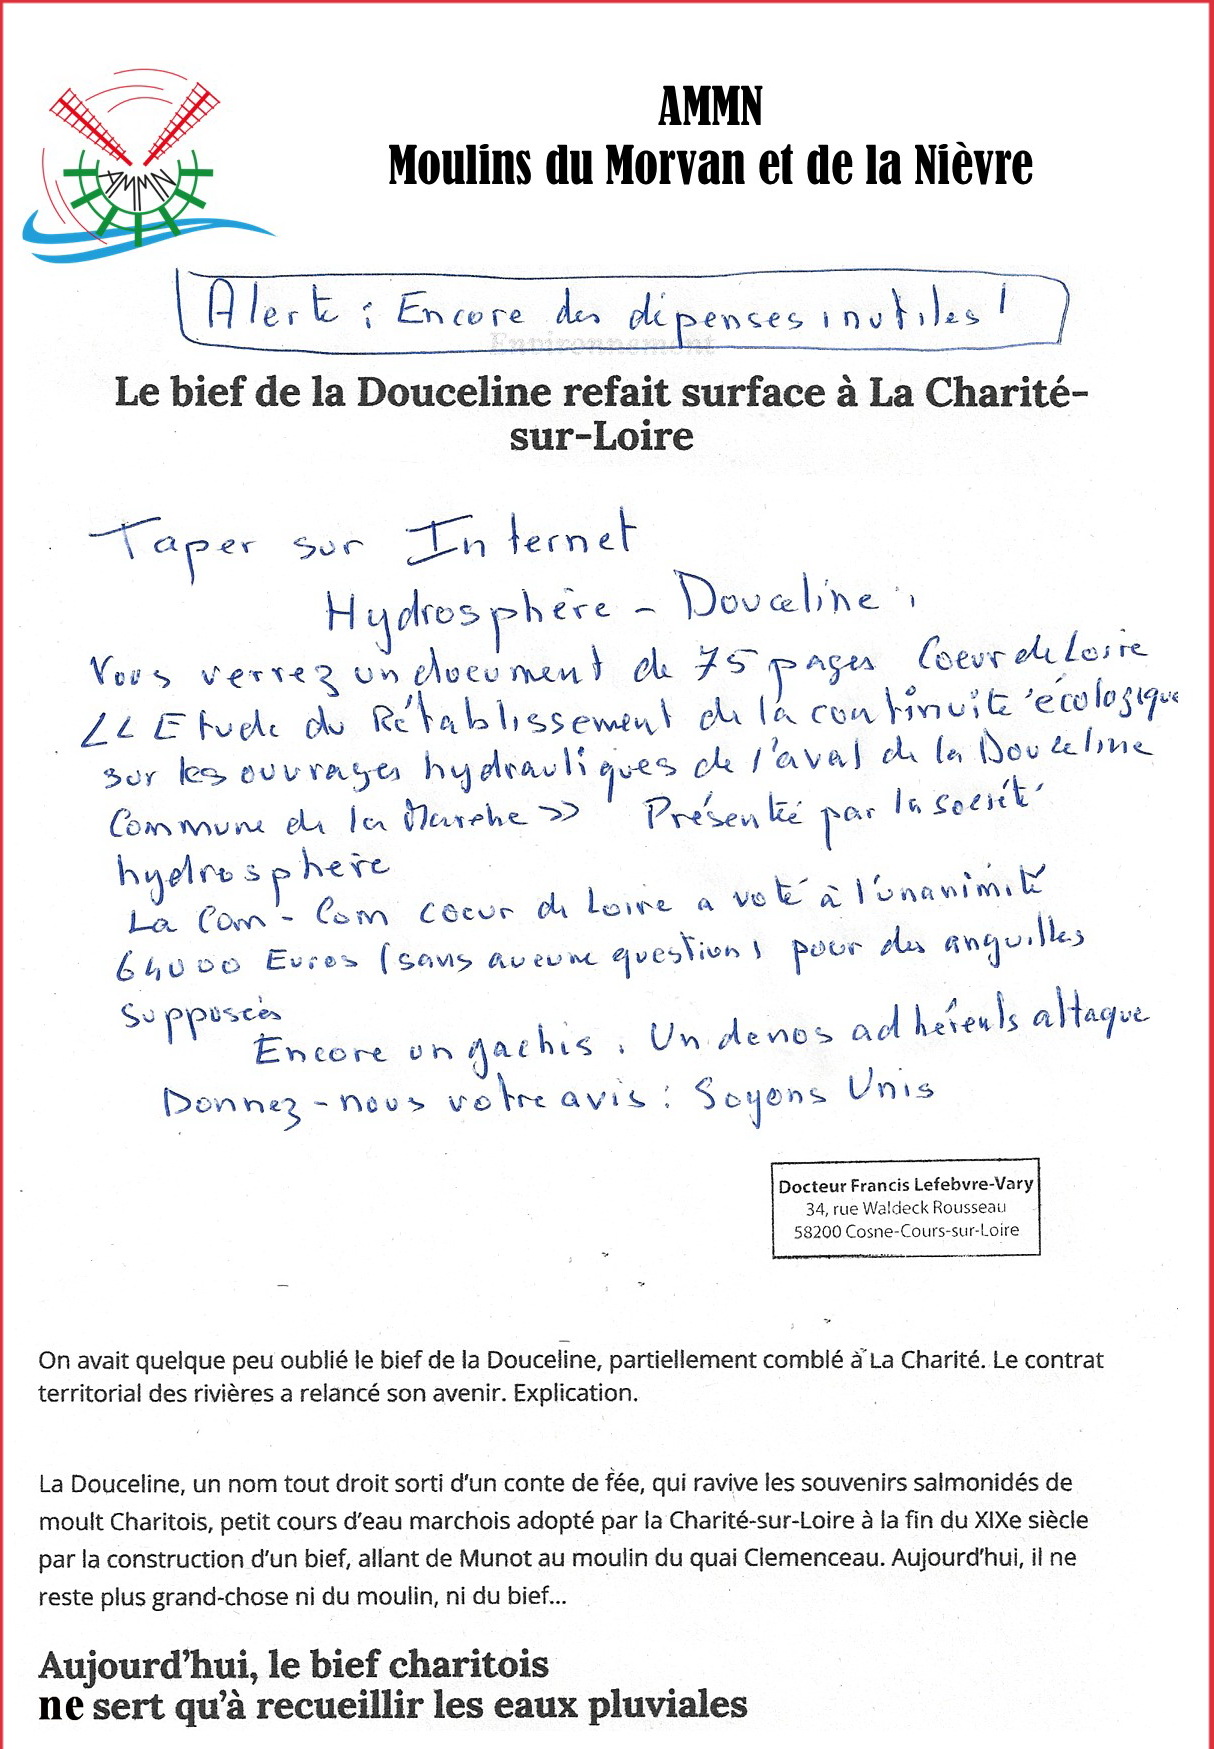 AMMN
Moulins du Morvan et de la Nièvre
AMMN
Alerte : Encore des dépenses inutiles !
Environnement
Le bief de la Douceline refait surface à La Charité-
sur-Loire
Taper sur Internet
Hydrosphère - Douceline :
Vous verrez un document de 75 pages Coeur de Loire
<< Etude du Rétablissement de la continuité écologique
sur les ouvrages hydrauliques de l'aval de la Douceline
Commune de la Marche >> Présenté par la société
hydrosphère
La Com-Com coeur de Loire a voté à l'unanimité
64000 Euros (sans aucune question) pour des anguilles
supposées
Encore un gachis. Un de nos adhérents attaque
Donnez-nous votre avis : Soyons Unis
Docteur Francis Lefebvre-Vary
34, rue Waldeck Rousseau
58200 Cosne-Cours-sur-Loire
On avait quelque peu oublié le bief de la Douceline, partiellement comblé à La Charité. Le contrat
territorial des rivières a relancé son avenir. Explication.
La Douceline, un nom tout droit sorti d'un conte de fée, qui ravive les souvenirs salmonidés de
moult Charitois, petit cours d'eau marchois adopté par la Charité-sur-Loire à la fin du XIXe siècle
par la construction d'un bief, allant de Munot au moulin du quai Clemenceau. Aujourd'hui, il ne
reste plus grand-chose ni du moulin, ni du bief...
Aujourd'hui, le bief charitois
ne sert qu'à recueillir les eaux pluviales